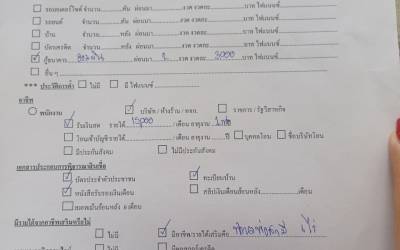 ☐ รถมอเตอร์ไซค์ จำนวน............คัน ผ่อนมา............งวด งวดละ............บาท ไฟแนนซ์
☐ รถยนต์ จำนวน............คัน ผ่อนมา............งวด งวดละ............บาท ไฟแนนซ์
☐ บ้าน จำนวน............หลัง ผ่อนมา............งวด งวดละ............บาท ไฟแนนซ์
☐ บัตรเครดิต จำนวน............ ผ่อนมา............งวด งวดละ............บาท ไฟแนนซ์
☑ กู้ธนาคาร ออมสิน ผ่อนมา............งวด งวดละ 3000 บาท ไฟแนนซ์
☐ อื่น ๆ
*** ประวัติการค้ำ ☐ ไม่มี ☐ มี ไฟแนนซ์
อาชีพ
○ พนักงาน ☑ บริษัท / ห้างร้าน / หจก. ☐ ราชการ / รัฐวิสาหกิจ
☑ รับเงินสด รายได้ 15000 / เดือน อายุงาน
☐ โอนเข้าบัญชี รายได้............/ เดือน อายุงาน............ปี ☐ บุคคลโอน ☐ ชื่อบริษัทโอน
☐ มีประกันสังคม ☐ ไม่มีประกันสังคม
เอกสารประกอบการพิจารณาสินเชื่อ
☑ บัตรประจำตัวประชาชน ☑ ทะเบียนบ้าน
☑ หนังสือรับรองเงินเดือน ☐ สลิปเงินเดือนย้อนหลัง............/เดือน
☐ สเตทเม้นย้อนหลัง 6 เดือน
มีรายได้จากอาชีพเสริมหรือไม่
☐ ไม่มี ☑ มีอาชีพ/รายได้เสริมคือ